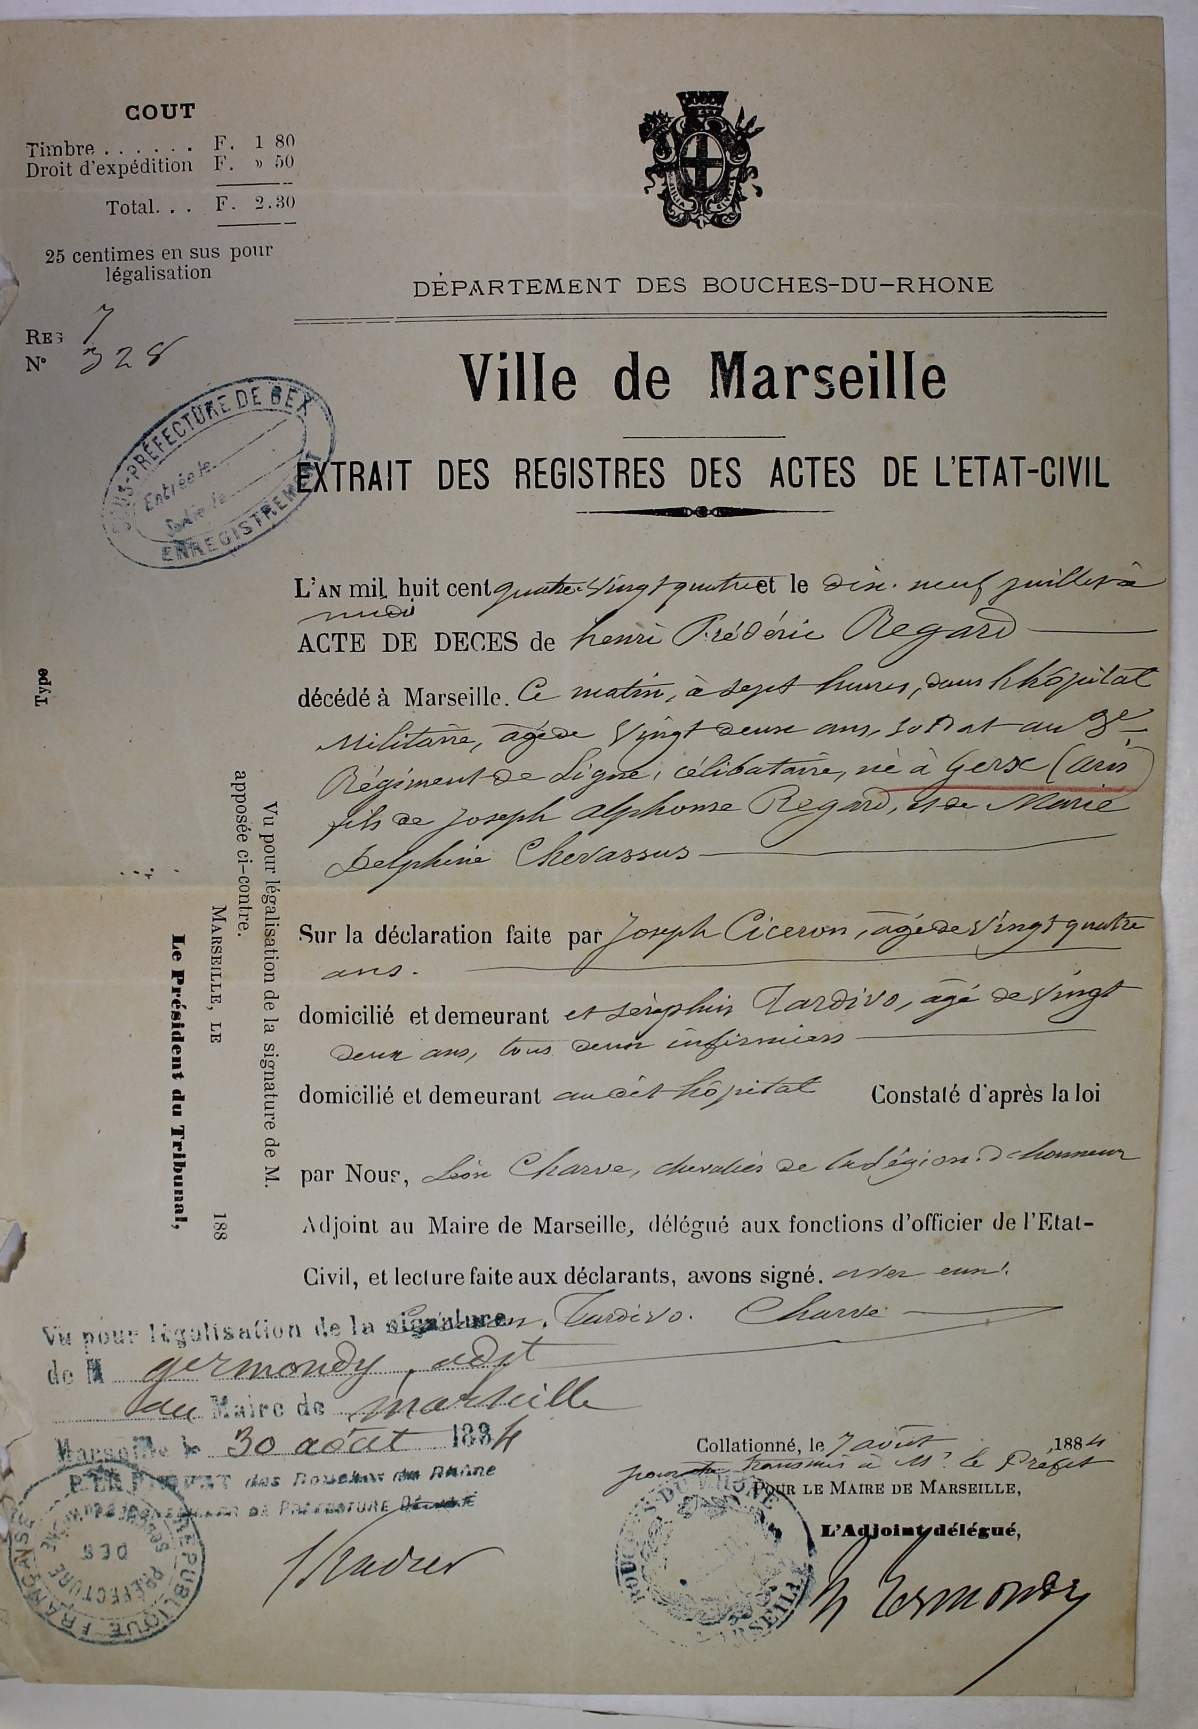 COUT
Timbre . . . . . . F. 1 80
Droit d'expédition F. » 50
Total. . . F. 2.30
25 centimes en sus pour
légalisation
REG 7
N° 328
SOUS-PRÉFECTURE DE GEX
Entrée le
Sortie le
ENREGISTREMENT
DÉPARTEMENT DES BOUCHES-DU-RHONE
Ville de Marseille
EXTRAIT DES REGISTRES DES ACTES DE L'ETAT-CIVIL
L'AN mil huit cent quatre-vingt quatre et le dix-neuf juillet à
midi
ACTE DE DECES de henri Frédéric Regard
décédé à Marseille. Ce matin, à sept heures, dans l'hôpital
Militaire, âgé de Vingt deux ans, soldat au 3e
Régiment de Ligne, célibataire, né à Gerse (Aris)
fils de Joseph Alphonse Regard, et de Marie
Delphine Chevassus
Sur la déclaration faite par Joseph Ciceron, âgé de Vingt quatre
ans.
domicilié et demeurant et séraphin Tardivo, âgé de Vingt
deux ans, tous deux infirmiers
domicilié et demeurant au dit hôpital Constaté d'après la loi
par Nous, Léon Charve, chevalier de la Légion d'honneur
Adjoint au Maire de Marseille, délégué aux fonctions d'officier de l'Etat-
Civil, et lecture faite aux déclarants, avons signé. avec eux.
Tardivo. Charve
Type
Vu pour légalisation de la signature de M.
apposée ci-contre.
MARSEILLE, LE 188
Le Président du Tribunal,
Vu pour légalisation de la signature
de M germondy, adjt
au Maire de marseille
Marseille le 30 août 1884
des Bouches du Rhône
DE PRÉFECTURE DÉLÉGUÉ
RÉPUBLIQUE FRANÇAISE
PRÉFECTURE DES
Collationné, le 7 août 1884
pour être transmis à Mr le Préfet
POUR LE MAIRE DE MARSEILLE,
L'Adjoint délégué,
BOUCHES DU RHÔNE
MARSEILLE
Germondy